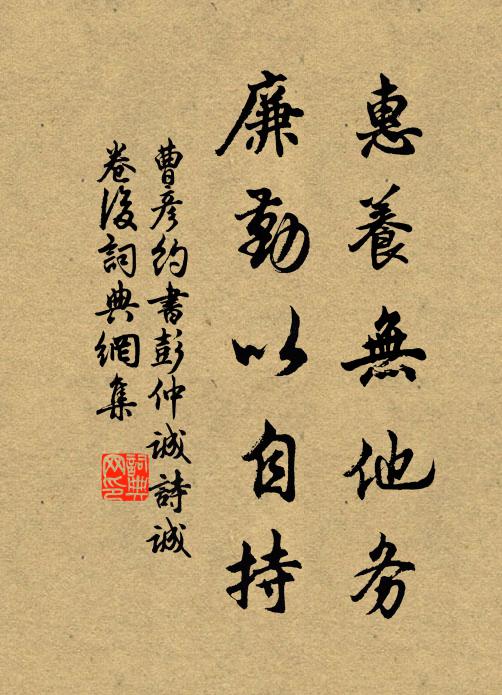 惠養無他务
廉勤以自持
曹彦約書彭仲诚詩诚
卷後詞典網集
詞典
网印